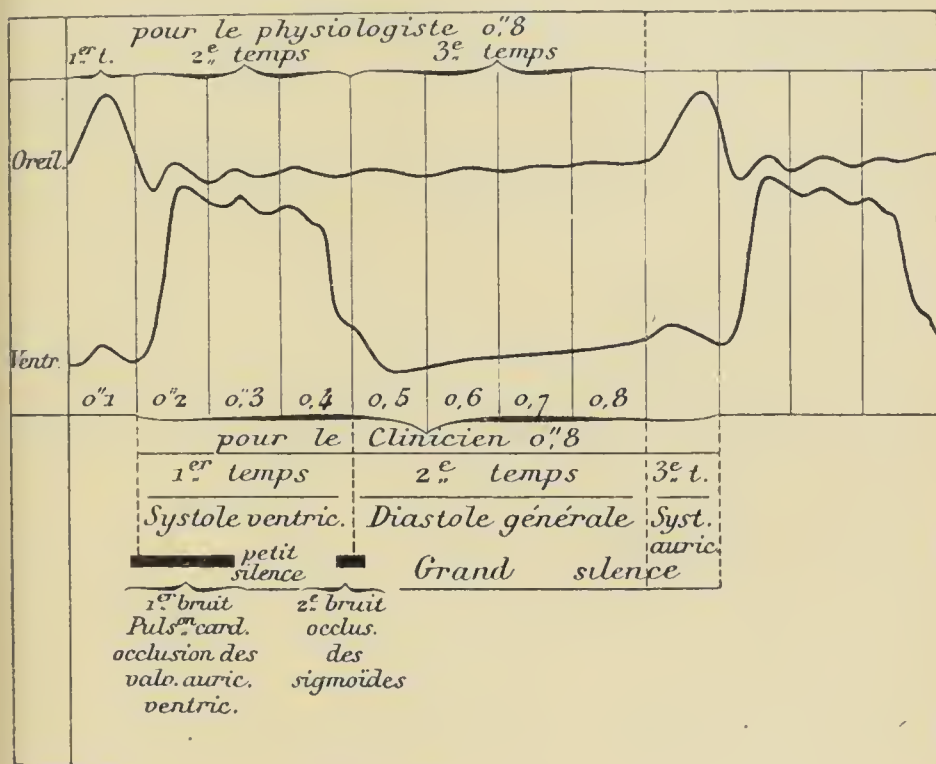 pour le physiologiste 0",8
1er t. 2e temps 3e temps
Oreil.
Ventr.
0"1 0"2 0",3 0,4 0,5 0,6 0,7 0,8
pour le Clinicien 0",8
1er temps 2e temps 3e t.
Systole ventric. Diastole générale Syst.
auric.
petit
silence
Grand silence
1er bruit
Pulson card.
occlusion des
valv. auric.
ventric.
2e bruit
occlus.
des
sigmoïdes